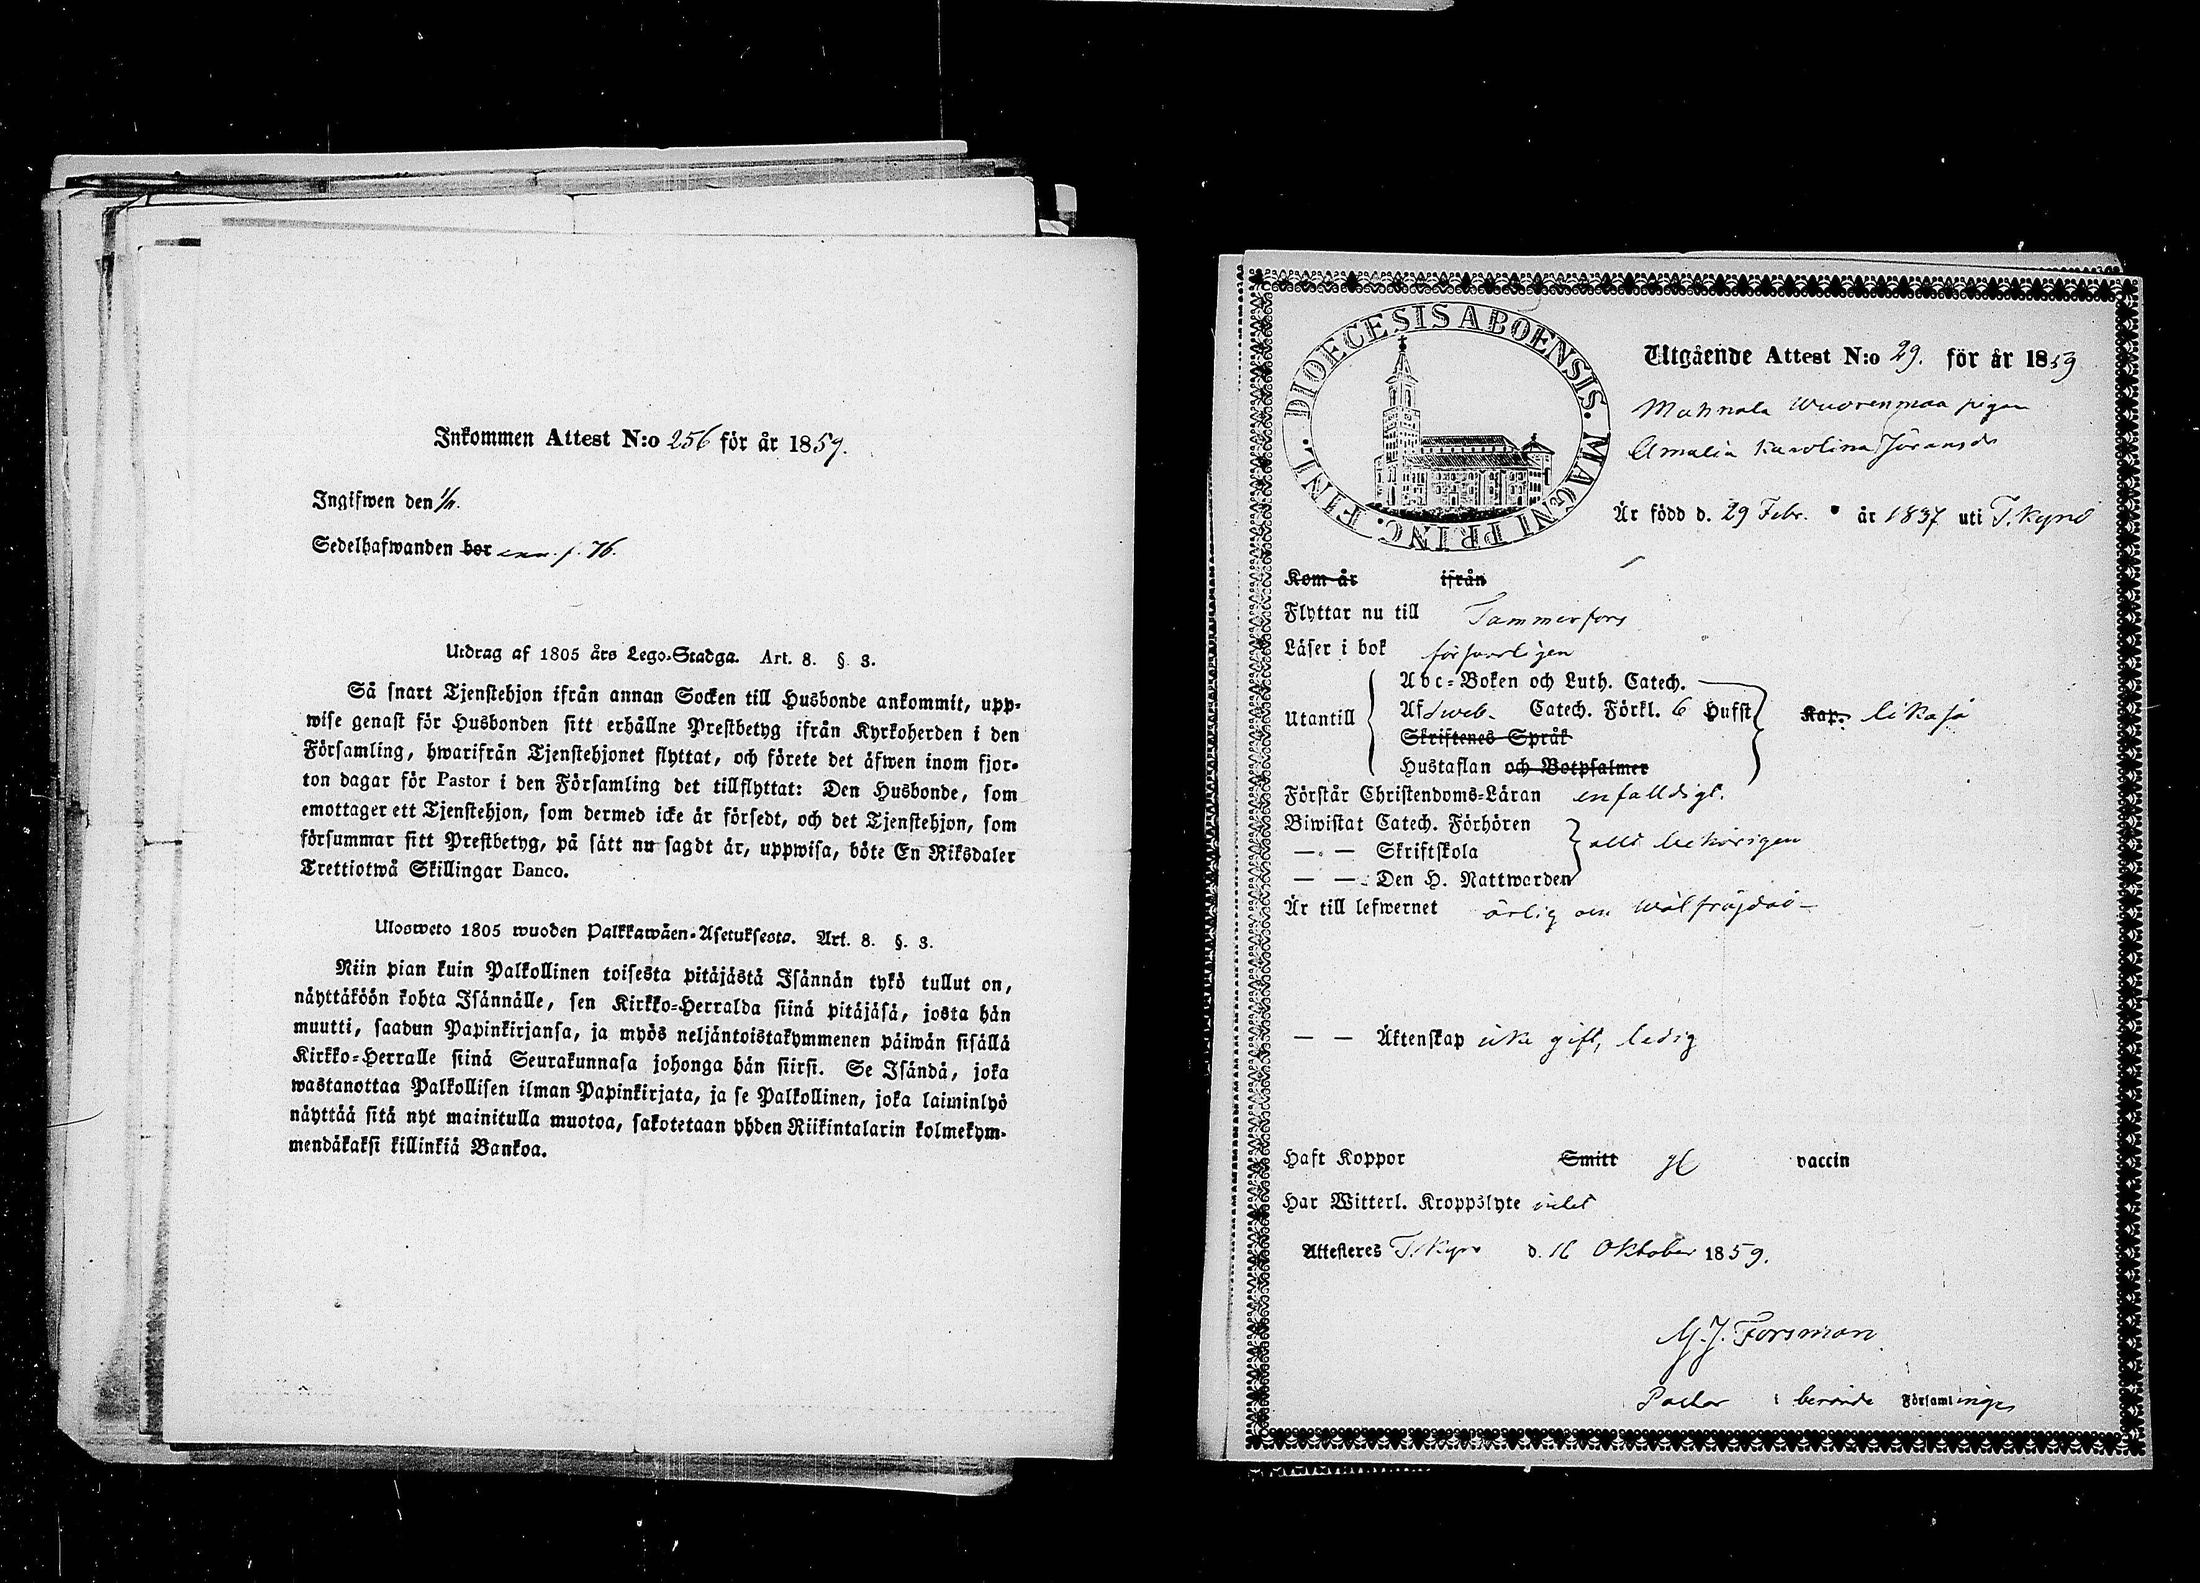 Inkommen Attest N:o 256 för år 1859.
Ingifwen den
Sedelhafwanden bor f. 76.
Utdrag af 1805 års Lego-Stadga. Art. 8. § 3.
Så snart Tjenstehjon ifrån annan Socken till Husbonde ankommit, upp-
wise genast för Husbonden sitt erhållne Prestbetyg ifrån Kyrkoherden i den
Församling, hwarifrån Tjenstehjonet flyttat, och förete det äfwen inom fjor-
ton dagar för Pastor i den Församling det tillflyttat: Den Husbonde, som
emottager ett Tjenstehjon, som dermed icke är försedt, och det Tjenstehjon, som
försummar sitt Prestbetyg, på sätt nu sagdt är, uppwisa, böte En Riksdaler
Trettiotwå Skillingar Banco.
Ulosweto 1805 wuoden Palkkawäen-Asetuksesta. Art. 8. §. 3.
Niin pian kuin Palkollinen toisesta pitäjästä Isännän tykö tullut on,
näyttäköön kohta Isännälle, sen Kirkko-Herralda siinä pitäjäsä, josta hän
muutti, saadun Papinkirjansa, ja myös neljäntoistakymmenen päiwän sisällä
Kirkko-Herralle siinä Seurakunnasa johonga hän siirsi. Se Isändä, joka
wastanottaa Palkollisen ilman Papinkirjata, ja se Palkollinen, joka laiminlyö
näyttää sitä nyt mainitulla muotoa, sakotetaan yhden Riikintalarin kolmekym-
mendäkaksi killinkiä Bankoa.
DIOECESIS ABOENSIS. MAGNI PRINC. FINL.
Utgående Attest N:o 29. för år 1859
Mahnala Wuorenmaa pigan
Amalia Karolina Jöransdr
Är född d. 29 Febr. är 1837 uti T.Kyro
Kom år ifrån
Flyttar nu till Tammerfors
Läser i bok försvarligen
Abc-Boken och Luth. Catech.
Utantill Af Sveb. Catech. Förkl. 6 Hufst Kap. likaså
Skriftenes Språk
Hustaflan och Botpsalmer
Förstår Christendoms-Läran enfaldigt.
Biwistat Catech. Förhören
— . — Skriftskola allt behörigen
— — . Den H. Nattwarden
Är till lefwernet ärlig och wälfräjdad
— — Äktenskap icke gift, ledig
Haft Koppor Smitt vaccin
Har Witterl. Kroppslyte intet
Attesteres T.Kyro d. 16 Oktober 1859.
M.J. Forsman
Pastor i berörde Församlinge